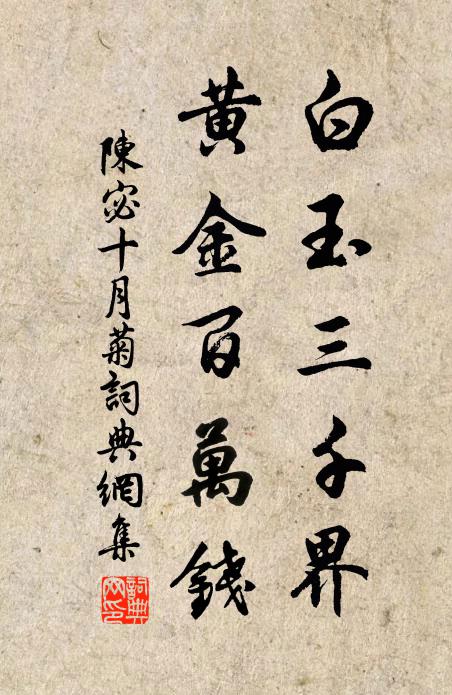 白玉三千界
黃金百萬錢
陳宓十月菊詞典網集
詞典網印